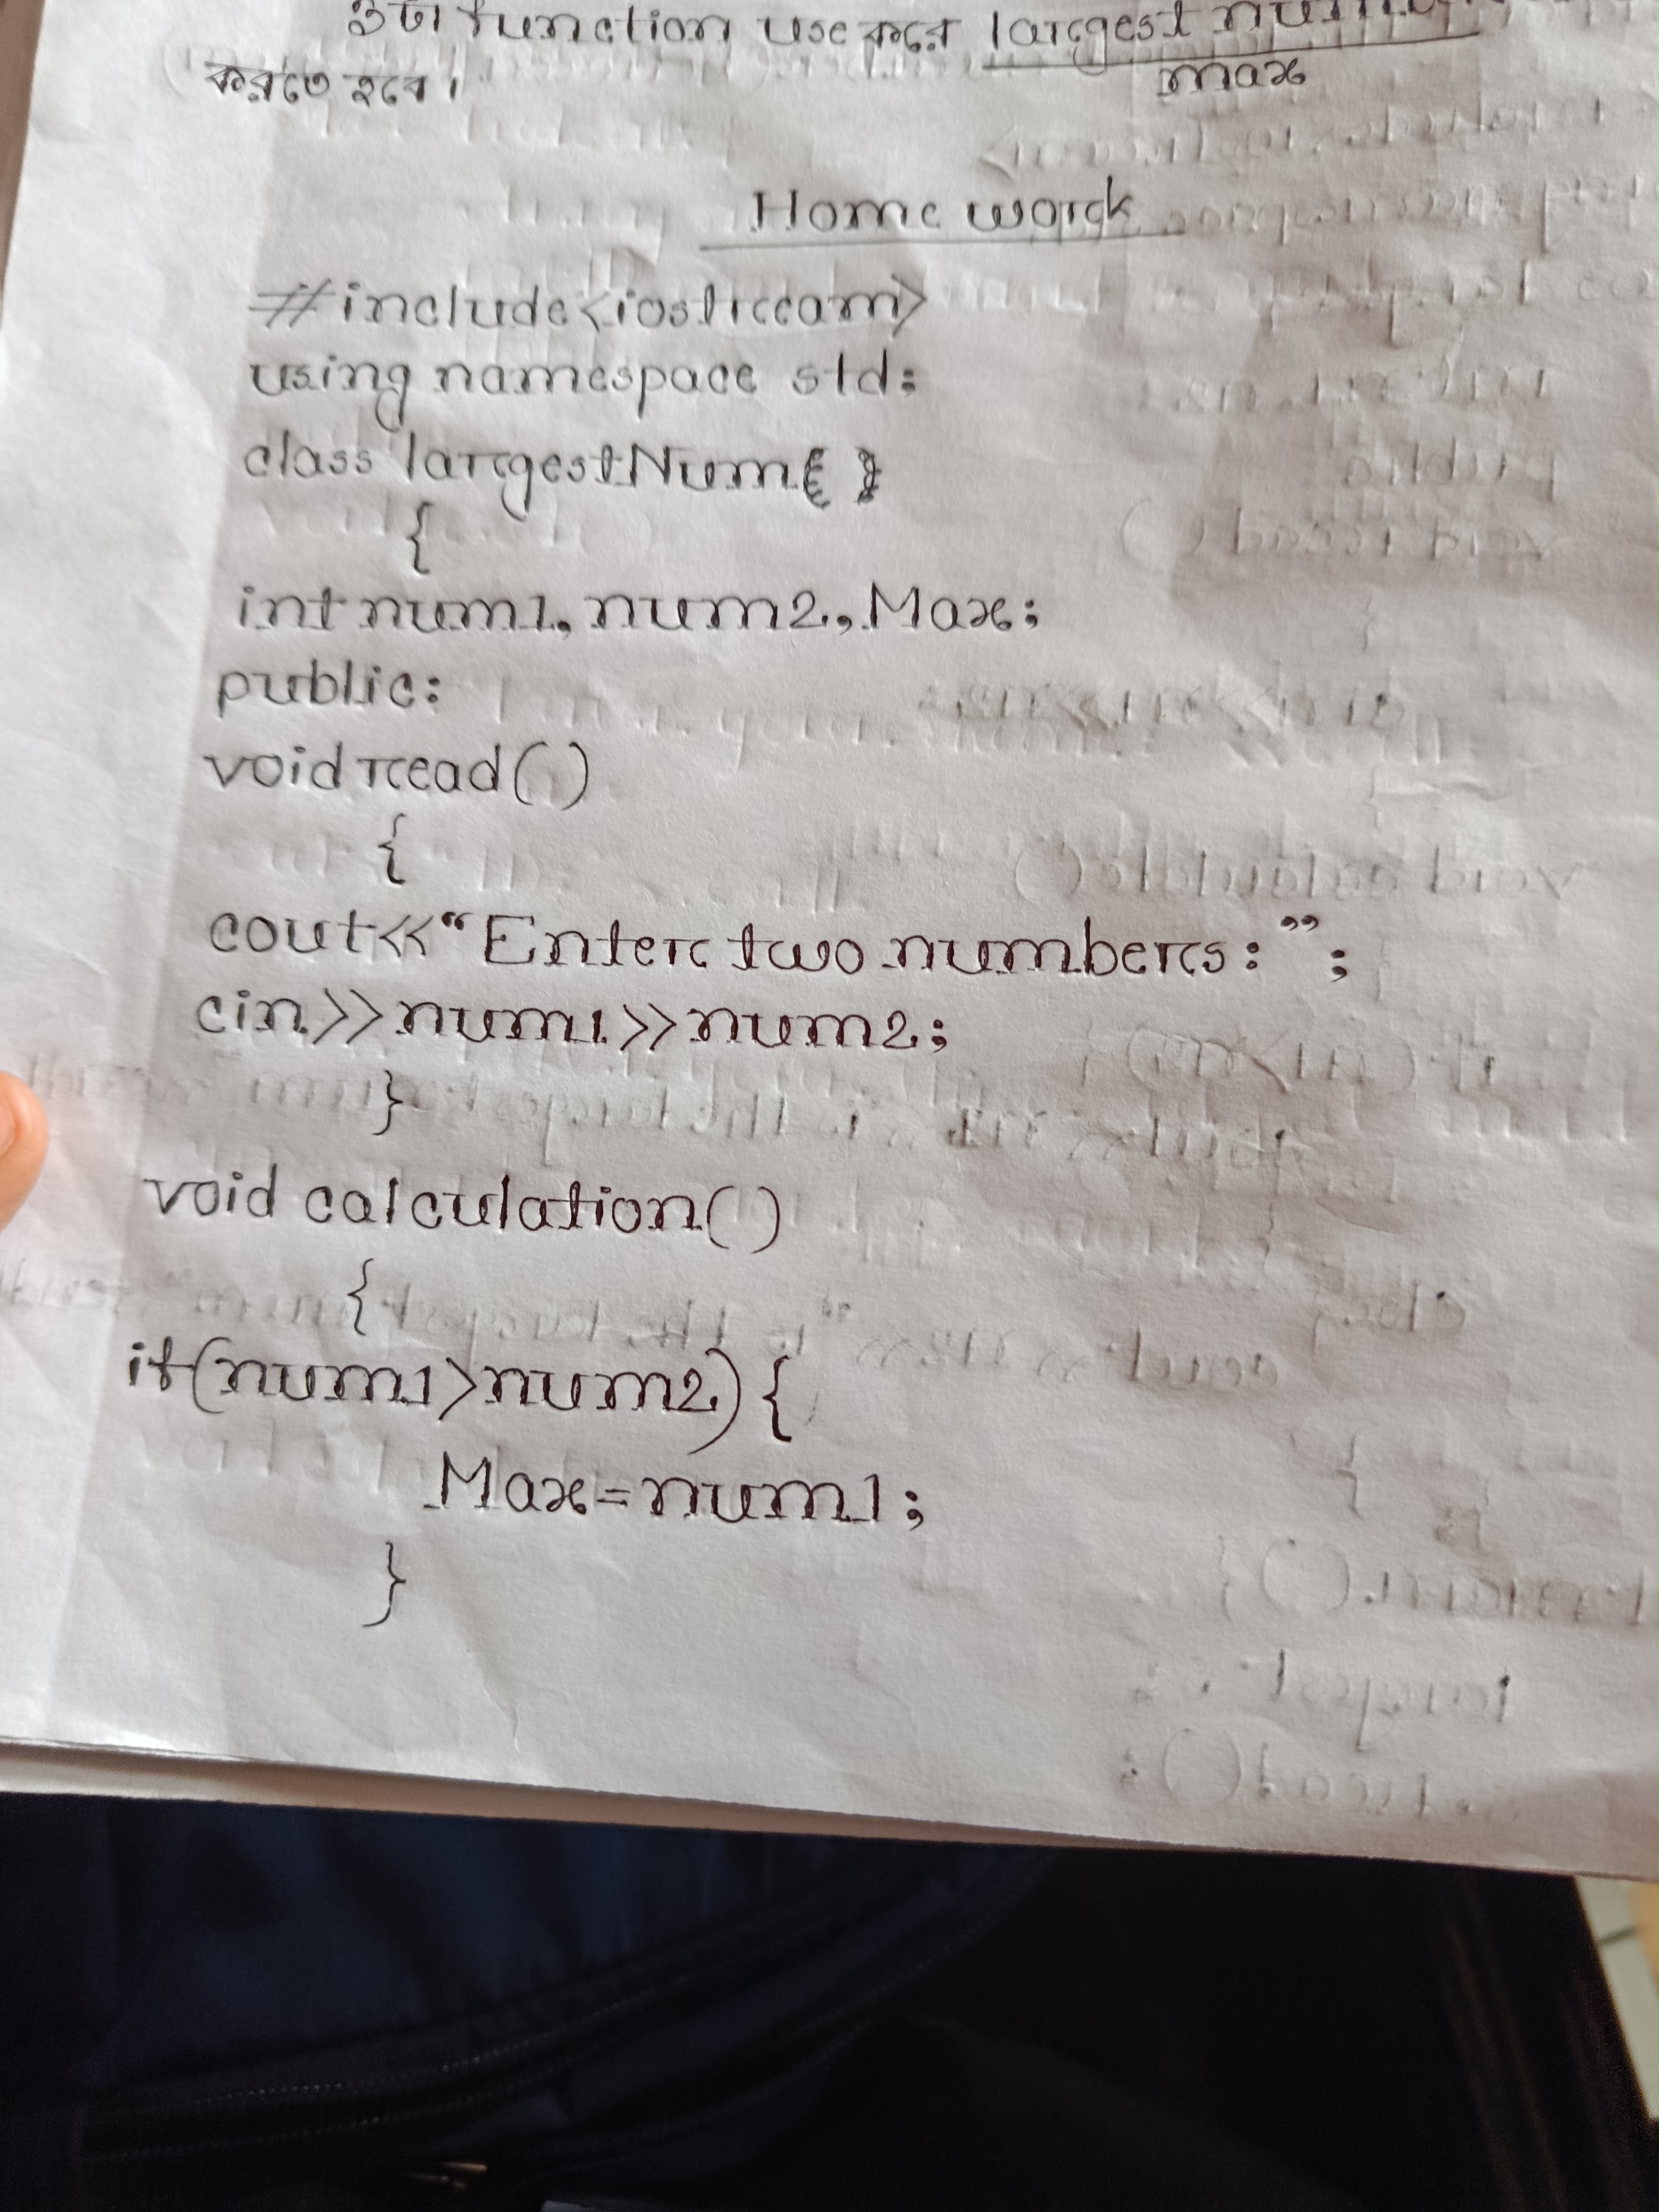 ৩টা function use করে largest
করতে হবে।
max
Home work
#include<iostream>
using namespace std;
class largestNum
{
int num1, num2, Max;
public:
void read()
{
cout<<“Enter two numbers:”;
cin>>num1>>num2;
}
void calculation()
{
if(num1>num2){
Max=num1;
}